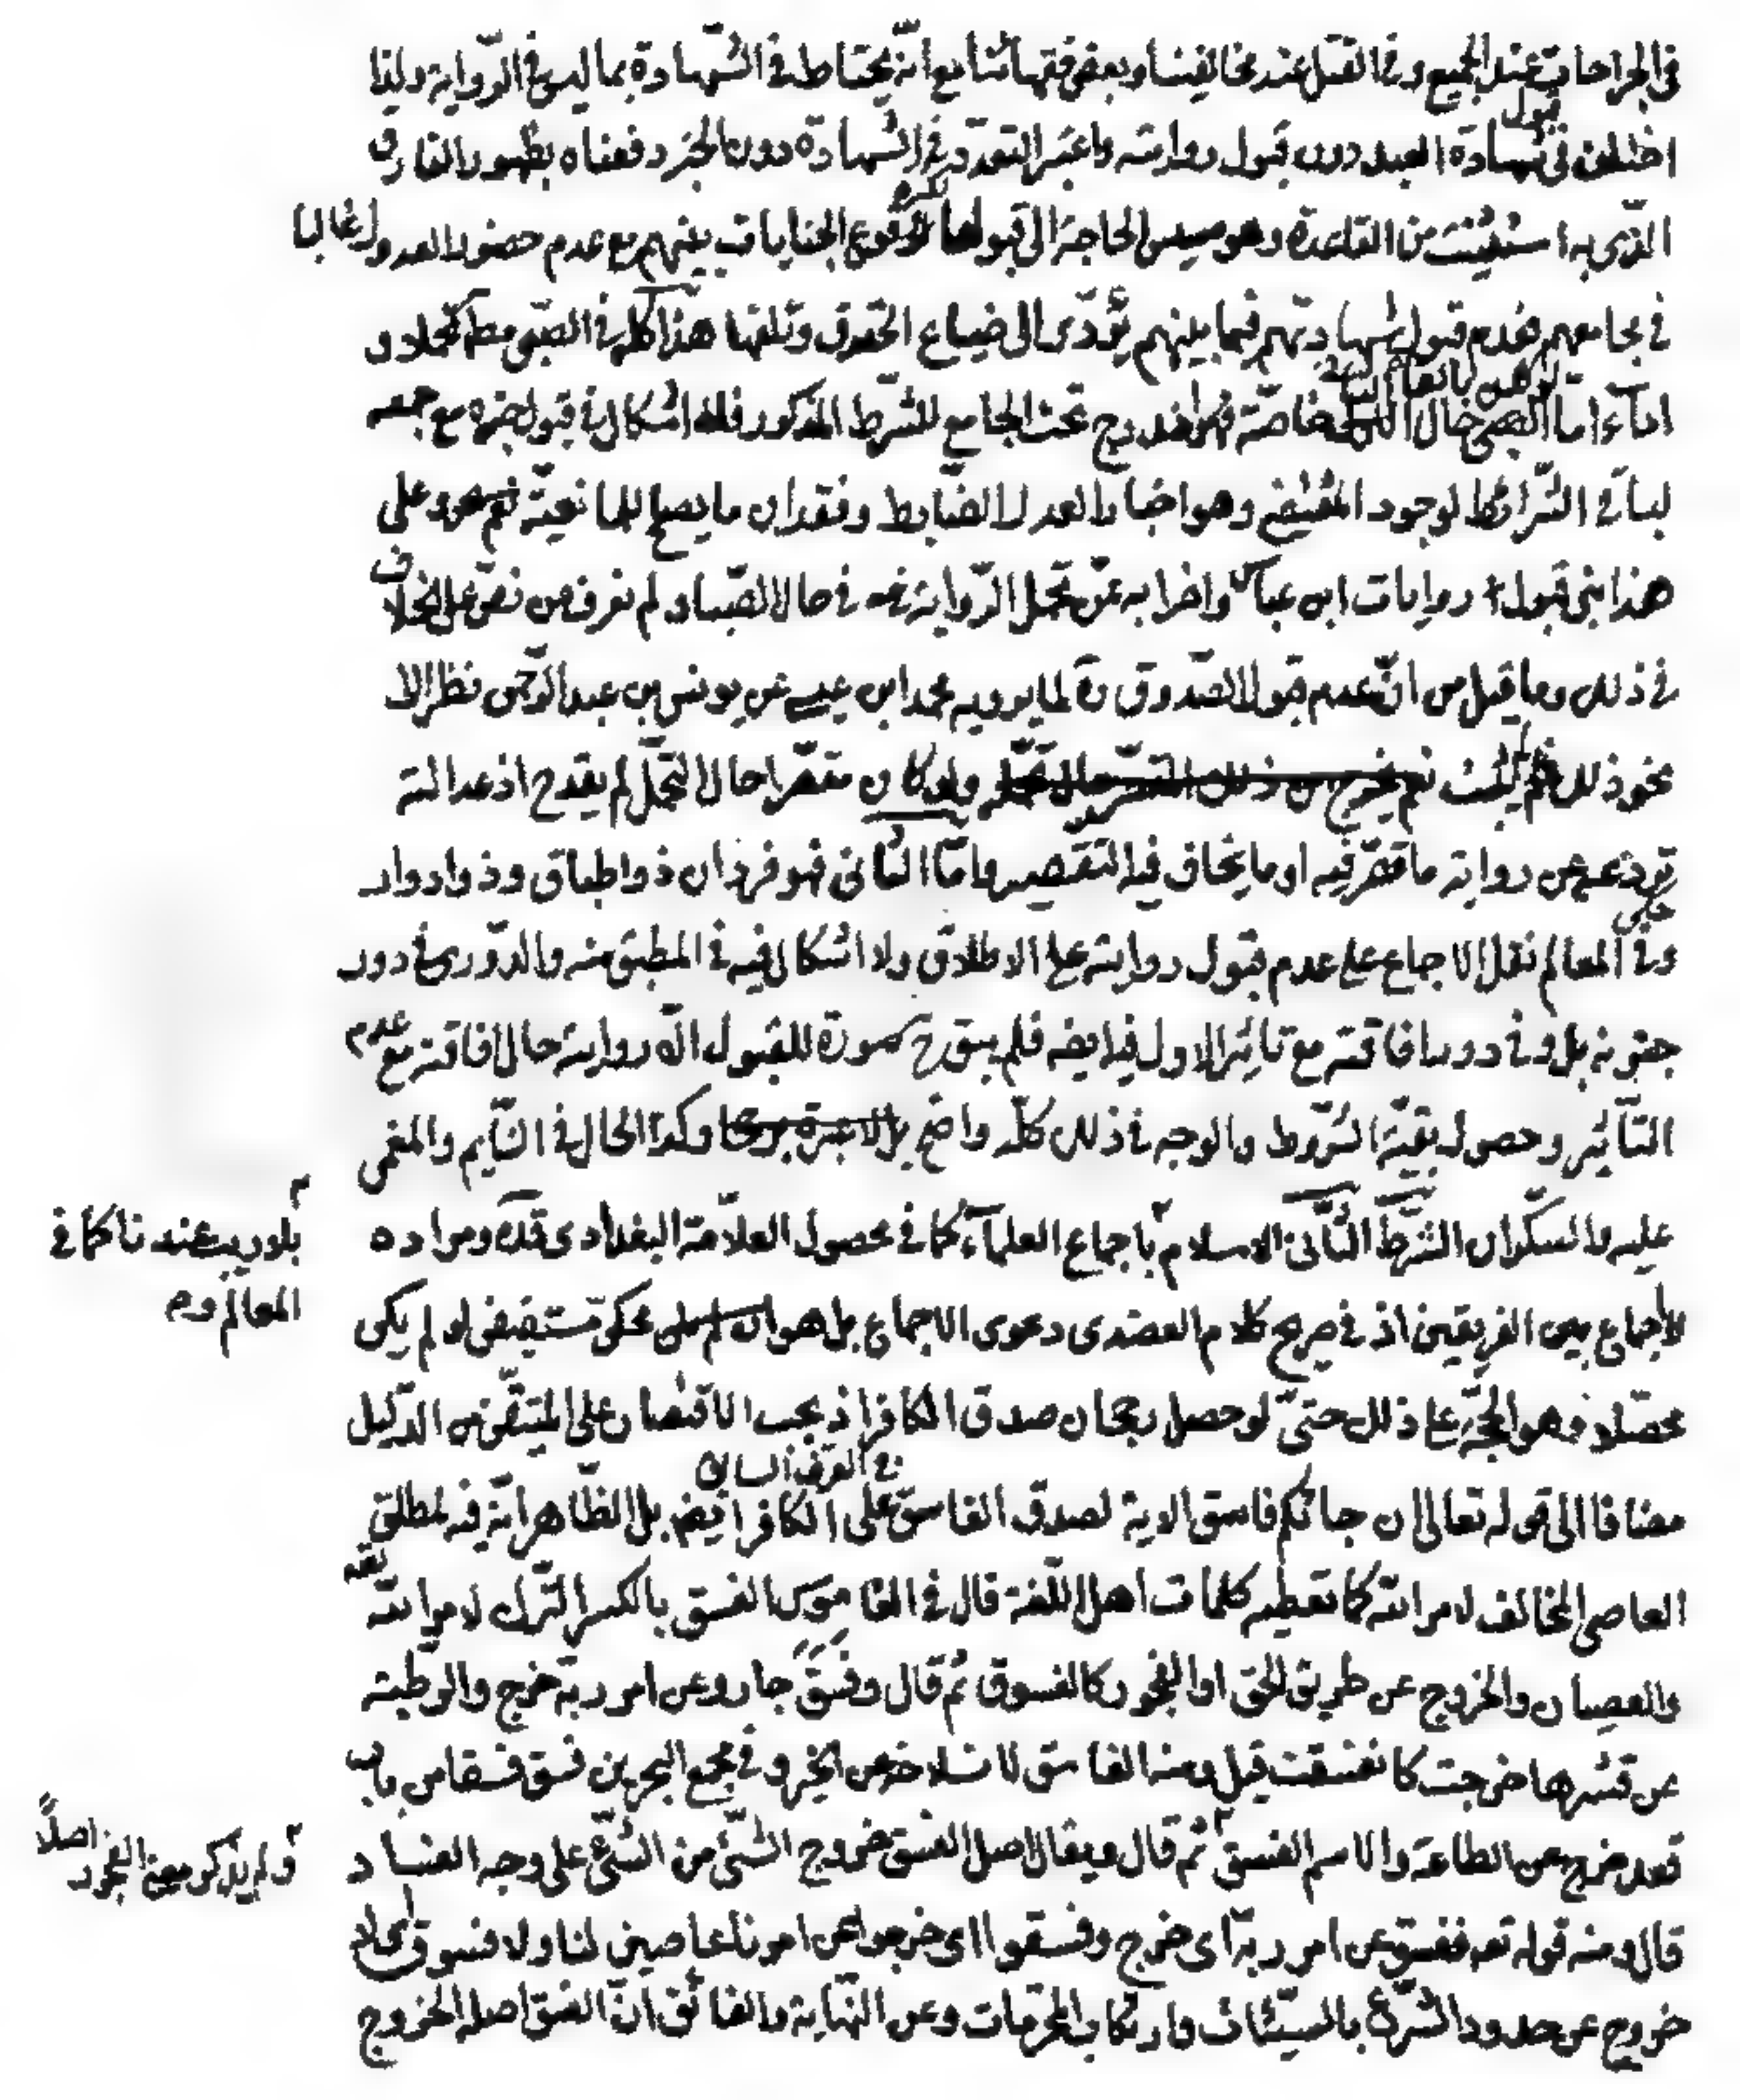 في الجراحات عند الجميع وفي القتل عند مخالفينا وبعض فقهائنا مع انه يحتاط في الشهادة بما ليس في الرواية ولذا
اختلف في قبول شهادة العبد دون قبول روايته واعتبر التعدد في الشهادة دون الخبر دفعناه بظهور الفارق
الذي به استثنيت من القاعدة وهو مسيس الحاجة الى قبولها لكثرة وقوع الجنايات بينهم مع عدم حضور العدول غالبا
في مجامعهم فعدم قبول شهادتهم فيما بينهم يؤدى الى ضياع الحقوق وتلفها هذا كله في الصبى مط تحملا و
اداء واما الصبى حال التحمل خاصة فهو اندرج تحت الجامع للشرط المذكور فلا اشكال في قبول خبره مع جمعه
لباقى الشرائط لوجود المقتضى وهو اخبار العدل الضابط وفقدان ما يصلح للمانعية وعلى
هذا بنى قبول روايات ابن عباس واضرابه عمن تحمل الرواية في حال الصبا ولم نعرف من نص على الخلاف
في ذلك وما قيل من ان عدم قبول الصدوق ره لما يرويه محمد ابن عيسى عن يونس بن عبد الرحمن نظر الا
نحو ذلك فلم يثبت نعم يخرج من ذلك ولو كان مقصرا حال التحمل لم يقدح اذ عدالته
تردعه عن رواية ما قصر فيه او ما يخاف فيه التقصير واما الثانى فهو فردان ذو اطباق وذو ادوار
وفى المعالم نقل الاجماع على عدم قبول روايته على الاطلاق ولا اشكال فيه في المطبق منه والدورى في دور
جنونه بل وفى دور افاقته مع تاثير الاول فيه ايضه فلم يبق ح صورة للقبول الا روايته حال افاقته مع عدم
التأثير وحصول بقية الشروط والوجه في ذلك كله واضح وكذا الحال في النايم والمغمى
عليه والسكران الشرط الثانى الاسلام باجماع العلماء كما في محصول العلامة البغدادى قده ومراده
بلا ريب عندنا كما في
المعالم وم
الاجماع بين الفريقين اذ في صريح كلام العضدى دعوى الاجماع بل هو محكى مستفيض لو لم يكن
محصلا وهو الحجة على ذلك حتى لو حصل رجحان صدق الكافر اذ يجب الاقتصار على المتيقن من الدليل
مضافا الى قوله تعالى ان جائكم فاسق الاية لصدق الفاسق في العرف السابق على الكافر ايضه بل الظاهر انه فيه لمطلق
العاصى المخالف لامر الله كما تعطيه كلمات اهل اللغة قال في القاموس الفسق بالكسر الترك لامر الله تعه
والعصيان والخروج عن طريق الحق او الفجور كالفسوق ثم قال وفسق جار وعن امر ربه خرج والرطبة
عن قشرها خرجت كانفسقت قيل ومنه الفاسق لانسلاخه عن الخير وفى مجمع البحرين فسق فسقا من باب
قعد خرج عن الطاعة والاسم الفسق ثم قال ويقال اصل الفسق خروج الشئ من الشئ على وجه الفساد
ولم يذكر معنى الفجور اصلاً
قال ومنه قوله تعه ففسق عن امر ربه اى خرج وفسقوا اى خرجوا عن امرنا عاصين لنا ولا فسوق اى لا
خروج عن حدود الشرع بالسيئات وارتكاب المحرمات وعن النهاية والفائق ان الفسق اصله الخروج